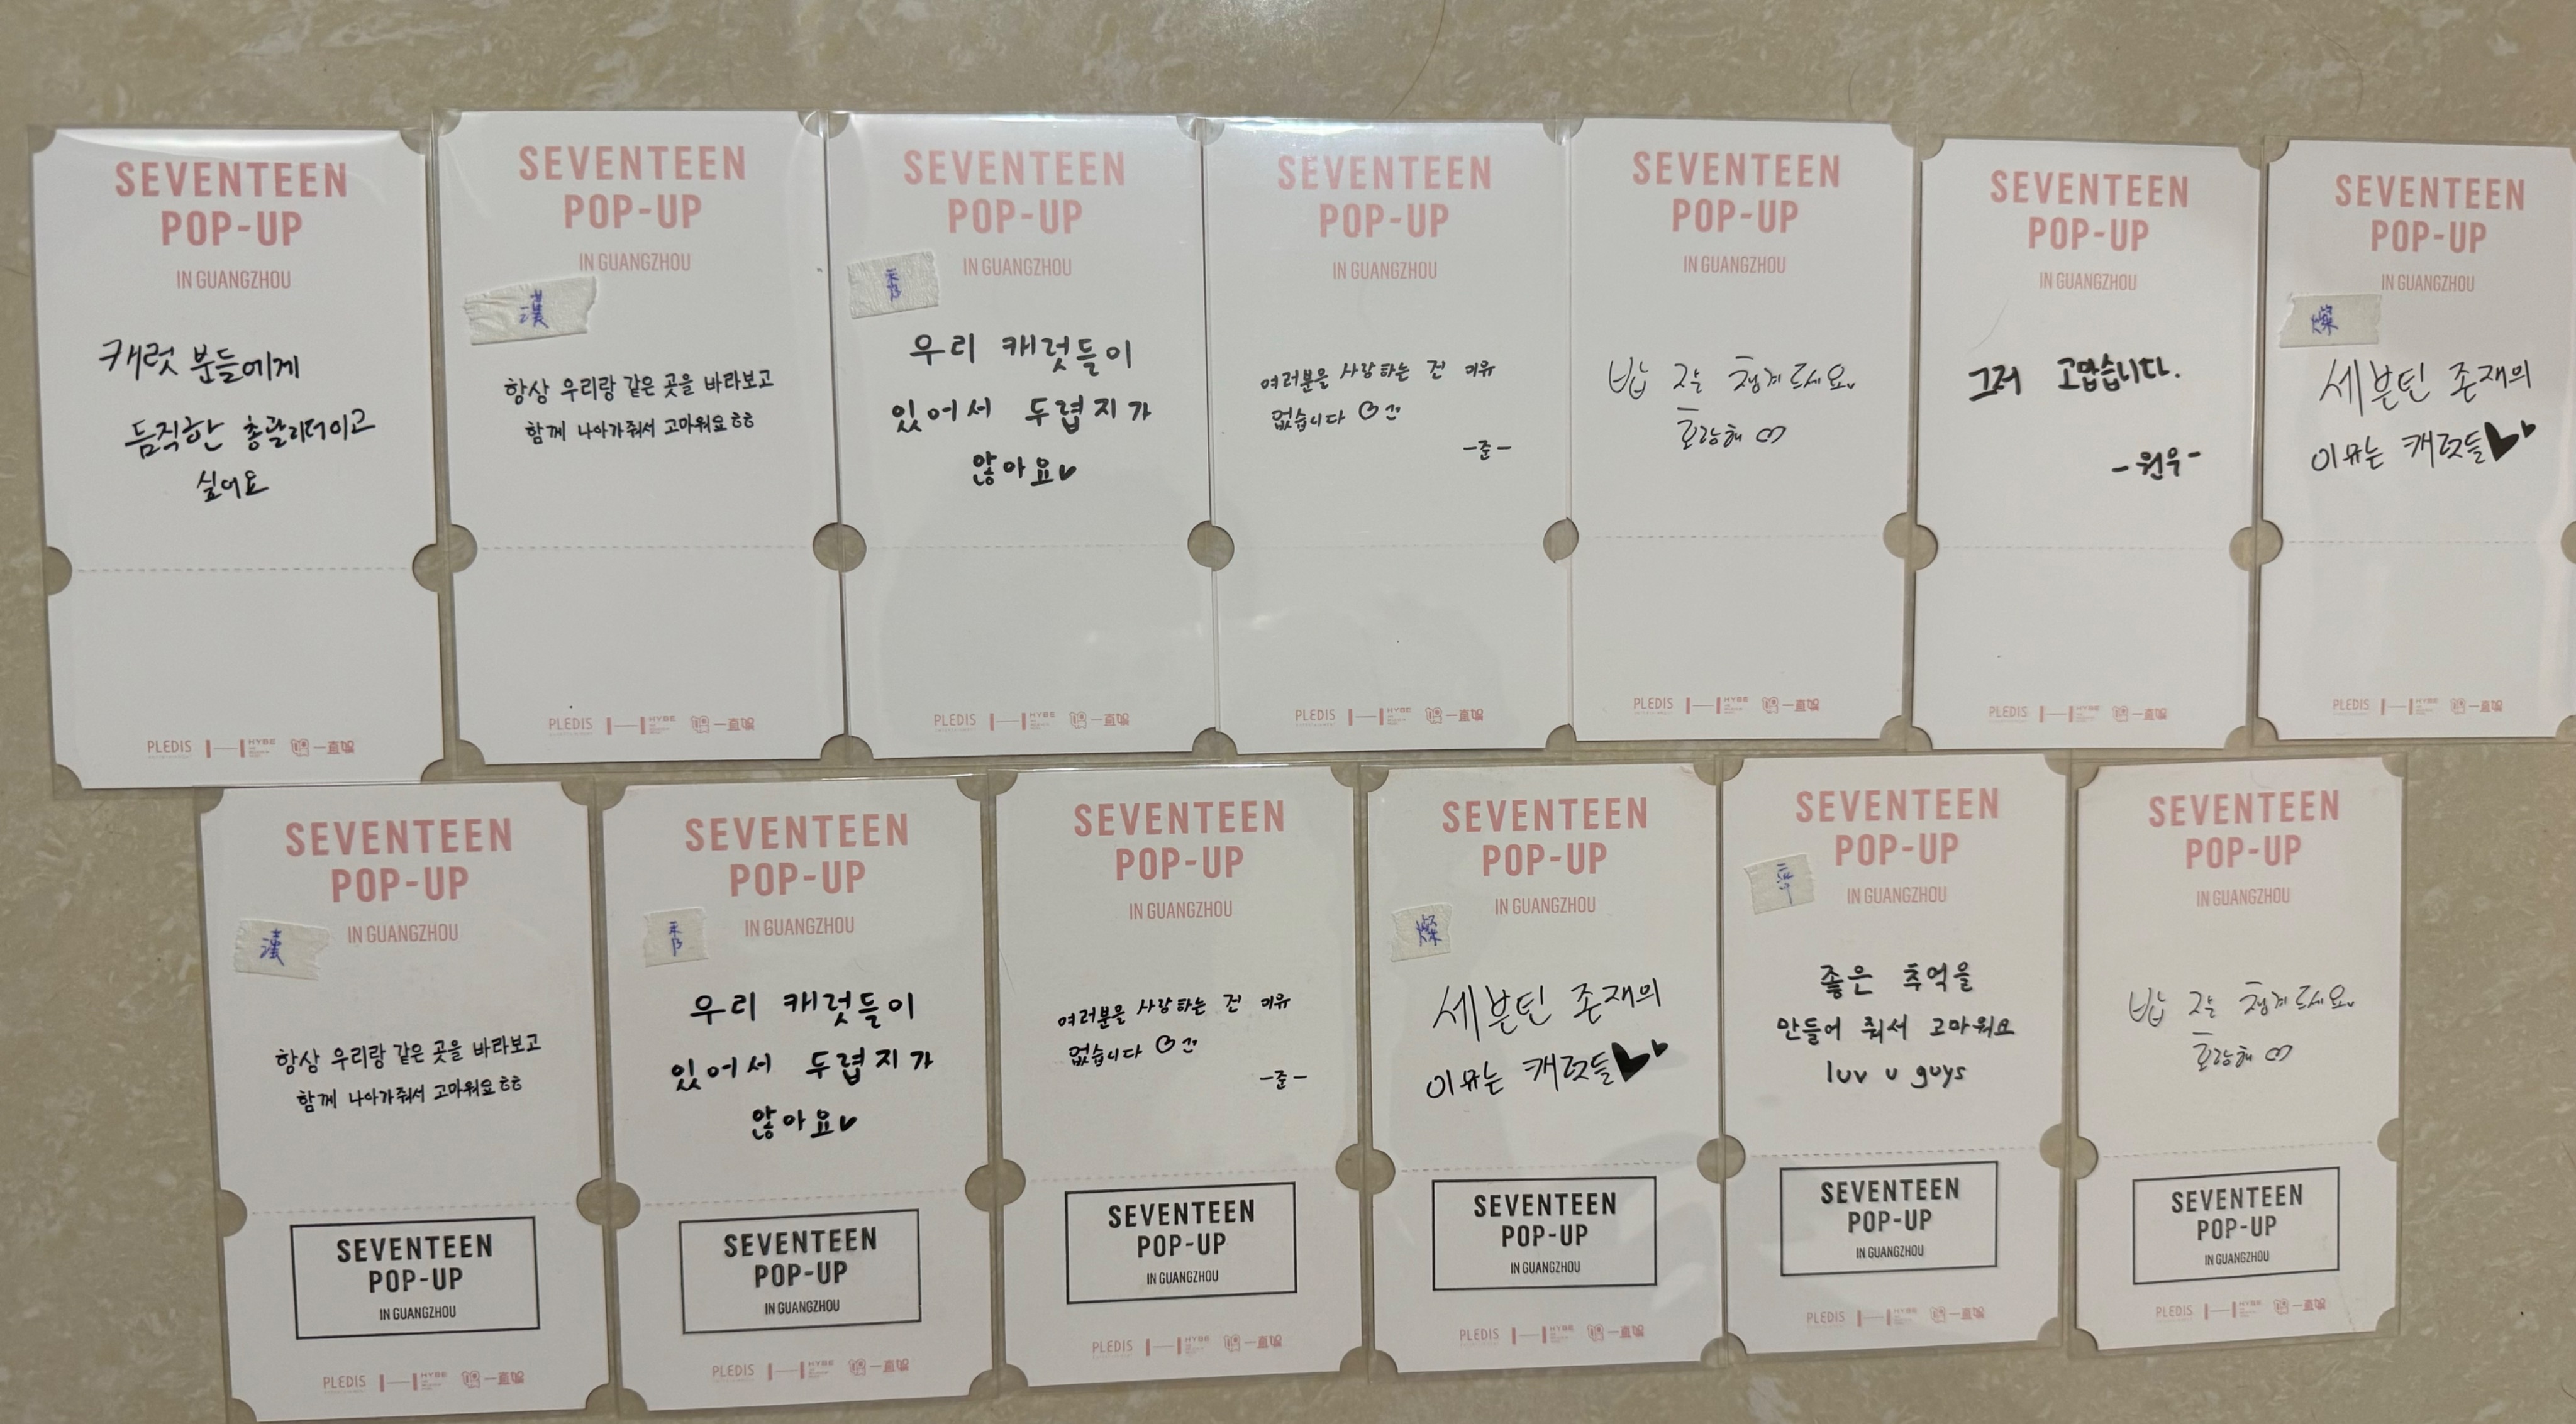 SEVENTEEN
POP-UP
IN GUANGZHOU
캐럿 분들에게
듬직한 총괄리더이고
싶어요
PLEDIS HYBE 一直娱
SEVENTEEN
POP-UP
IN GUANGZHOU
漢
항상 우리랑 같은 곳을 바라보고
함께 나아가줘서 고마워요ㅎㅎ
PLEDIS HYBE 一直娱
SEVENTEEN
POP-UP
IN GUANGZHOU
우리 캐럿들이
있어서 두렵지가
않아요
PLEDIS HYBE 一直娱
SEVENTEEN
POP-UP
IN GUANGZHOU
여러분을 사랑하는 건 이유
없습니다
-준-
PLEDIS HYBE 一直娱
SEVENTEEN
POP-UP
IN GUANGZHOU
밥 잘 챙겨드세요
호랑해
PLEDIS HYBE 一直娱
SEVENTEEN
POP-UP
IN GUANGZHOU
그저 고맙습니다.
-원우-
PLEDIS HYBE 一直娱
SEVENTEEN
POP-UP
IN GUANGZHOU
燦
세븐틴 존재의
이유는 캐럿들
PLEDIS HYBE 一直娱
SEVENTEEN
POP-UP
IN GUANGZHOU
漢
항상 우리랑 같은 곳을 바라보고
함께 나아가줘서 고마워요ㅎㅎ
SEVENTEEN
POP-UP
IN GUANGZHOU
PLEDIS HYBE 一直娱
SEVENTEEN
POP-UP
IN GUANGZHOU
우리 캐럿들이
있어서 두렵지가
않아요
SEVENTEEN
POP-UP
IN GUANGZHOU
PLEDIS HYBE 一直娱
SEVENTEEN
POP-UP
IN GUANGZHOU
여러분을 사랑하는 건 이유
없습니다
-준-
SEVENTEEN
POP-UP
IN GUANGZHOU
PLEDIS HYBE 一直娱
SEVENTEEN
POP-UP
IN GUANGZHOU
燦
세븐틴 존재의
이유는 캐럿들
SEVENTEEN
POP-UP
IN GUANGZHOU
PLEDIS HYBE 一直娱
SEVENTEEN
POP-UP
IN GUANGZHOU
좋은 추억을
만들어 줘서 고마워요
luv u guys
SEVENTEEN
POP-UP
IN GUANGZHOU
PLEDIS HYBE 一直娱
SEVENTEEN
POP-UP
IN GUANGZHOU
밥 잘 챙겨드세요
호랑해
SEVENTEEN
POP-UP
IN GUANGZHOU
PLEDIS HYBE 一直娱